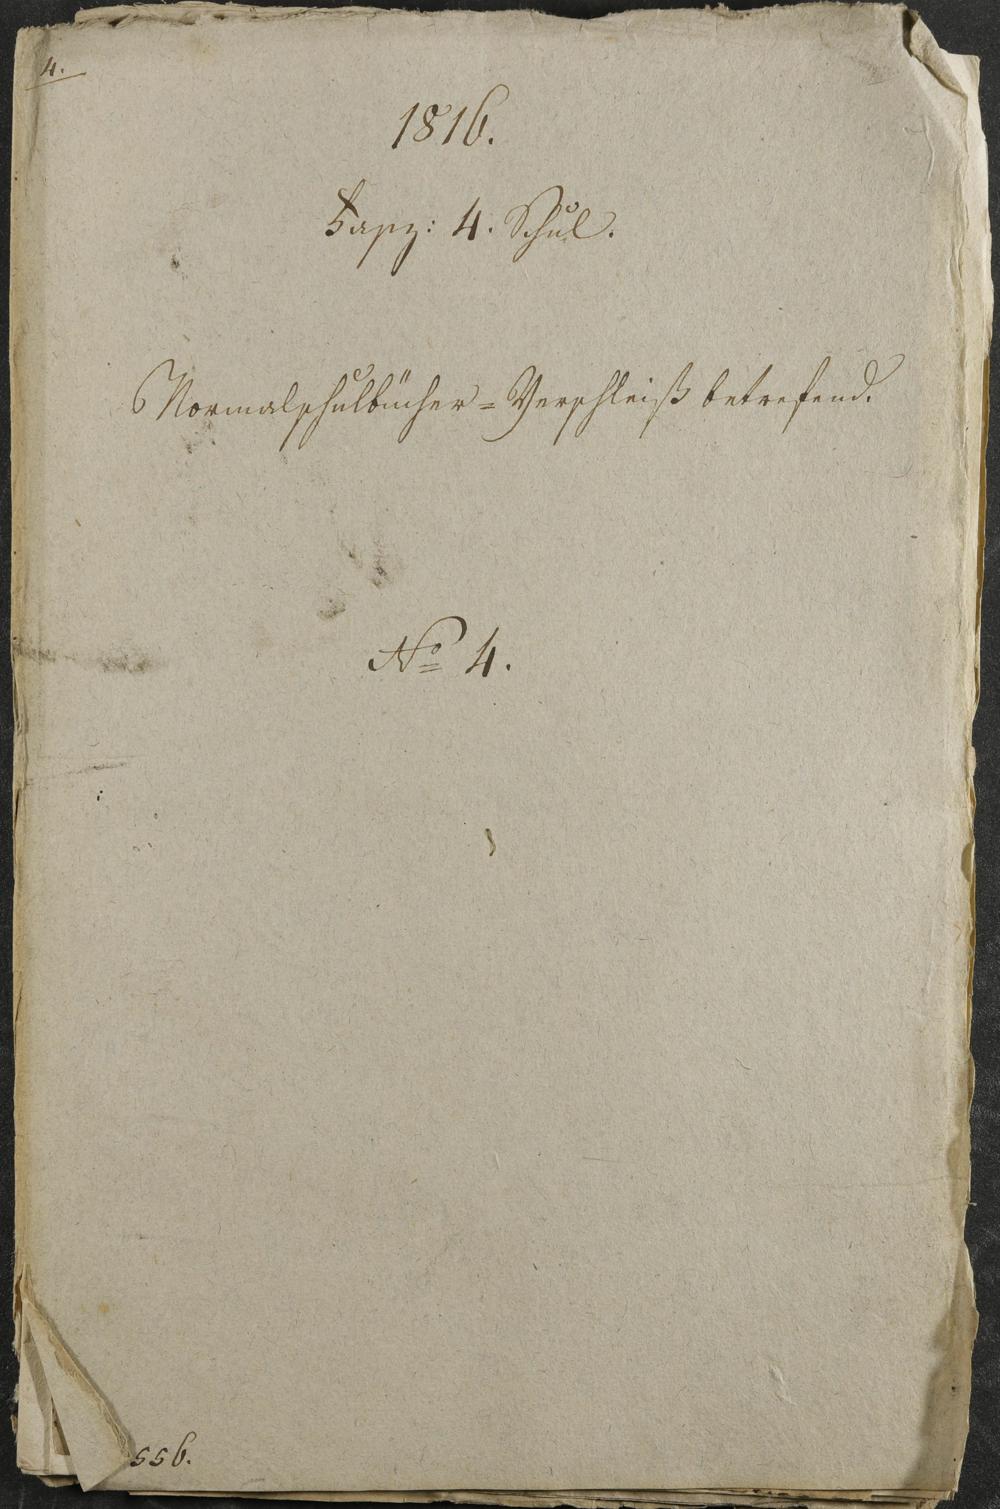 4.
1816.
Fasz: 4. Schul.
Normalschulbücher=Verschleiß betrefend.
No 4.
556.